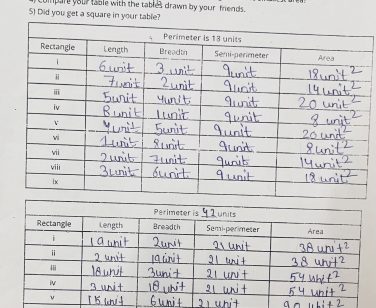 4) Compare your table with the tables drawn by your friends.
5) Did you get a square in your table?
Perimeter is 18 units
Rectangle Length Breadth Semi-perimeter Area
i 6 unit 3 unit 9 unit 18 unit²
ii 7 unit 2 unit 9 unit 14 unit²
iii 5 unit 4 unit 9 unit 20 unit²
iv 8 unit 1 unit 9 unit 8 unit²
v 4 unit 5 unit 9 unit 20 unit²
vi 1 unit 8 unit 9 unit 8 unit²
vii 2 unit 7 unit 9 unit 14 unit²
viii 3 unit 6 unit 9 unit 18 unit²
ix
Perimeter is 42 units
Rectangle Length Breadth Semi-perimeter Area
i 19 unit 2 unit 21 unit 38 unit²
ii 2 unit 19 unit 21 unit 38 unit²
iii 18 unit 3 unit 21 unit 54 unit²
iv 3 unit 18 unit 21 unit 54 unit²
v 15 unit 6 unit 21 unit 90 unit²